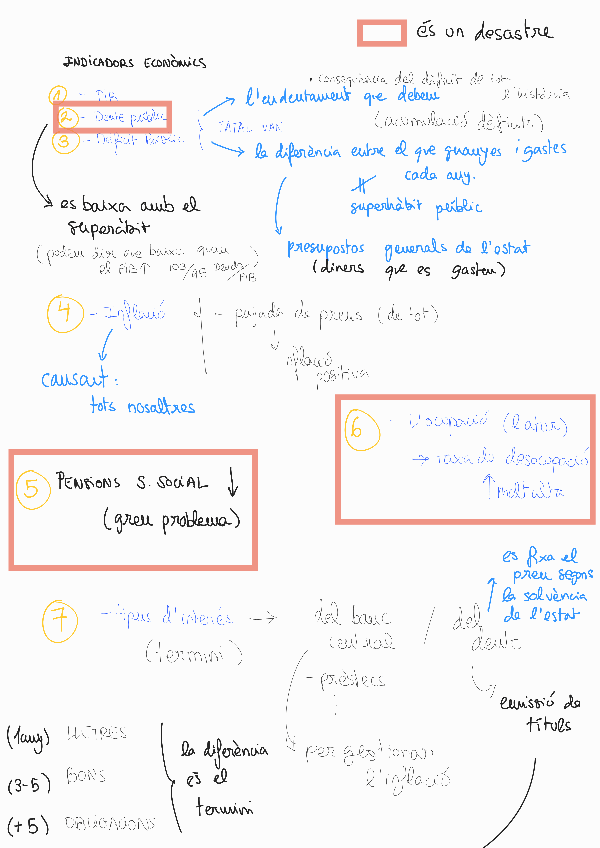 és un desastre
INDICADORS ECONÒMICS
1 - PIB
2 - Deute públic
3 - Dèficit Públic
• conseqüència del dèficit de tota
l'història
l'endeutament que debem
(acumulació dèficits)
la diferència entre el que guanyes i gastes
cada any.
≠
superhàbit públic
es baixa amb el
superàbit
(podem dir que baixa quan
el PIB↑
presupostos generals de l'estat
(diners que es gasten)
4 - Inflació
- pujada de preus (de tot)
inflació
positiva
causant:
tots nosaltres
6 - L'ocupació (l'atur)
→ taxa de desocupació
↑ molt alta
5 PENSIONS S. SOCIAL ↓
(greu problema)
es fixa el
preu segons
la solvència
de l'estat
7 - Tipus d'interès →
(termini)
del banc
central
/
del
deute
- préstecs
per gestionar
l'inflació
emissió de
títols
(1 any) LLETRES
(3-5) BONS
(+5) OBLIGACIONS
la diferència
és el
termini